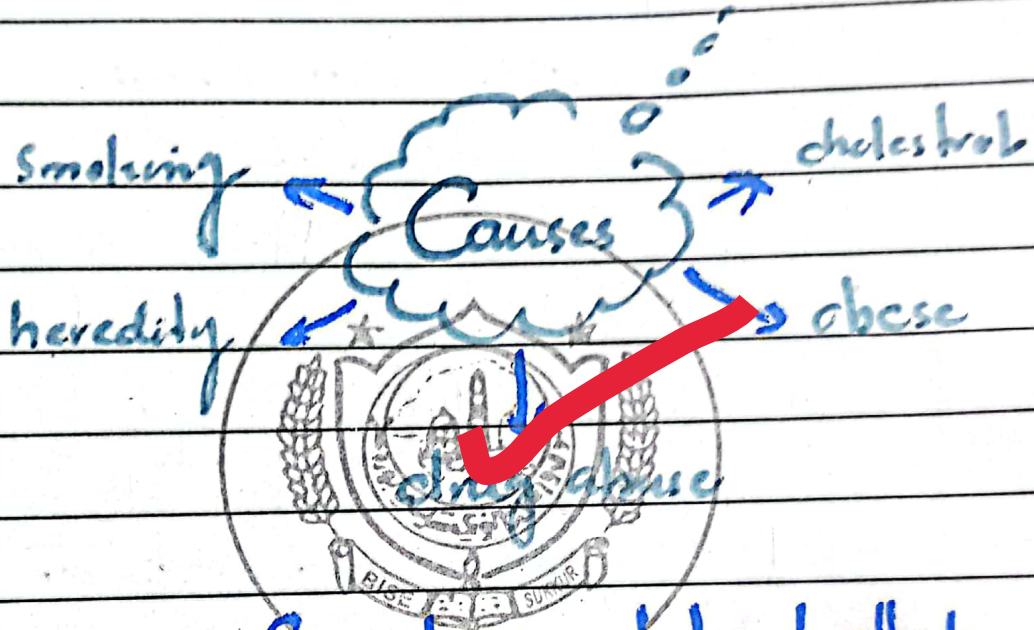 smoking
cholestrol
Causes
heredity
obese
drug abuse
BISE SUKKUR